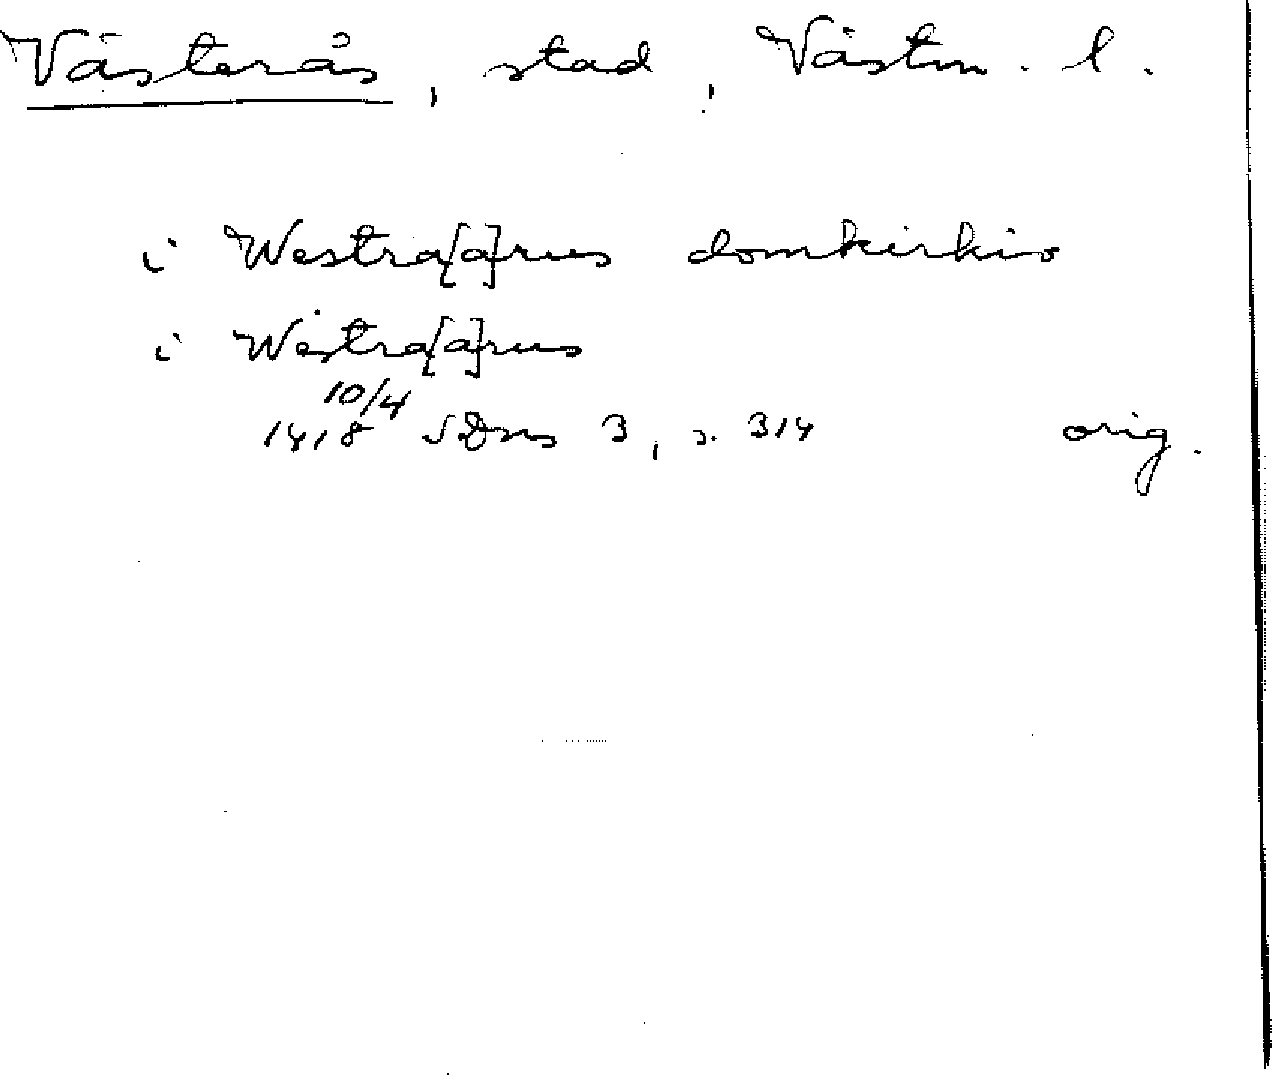 Västerås, stad, Västm. l.
i Westra[a]rus domkirkio
i Westra[a]rus
10/4
1418 SDns 3, s. 314 orig.